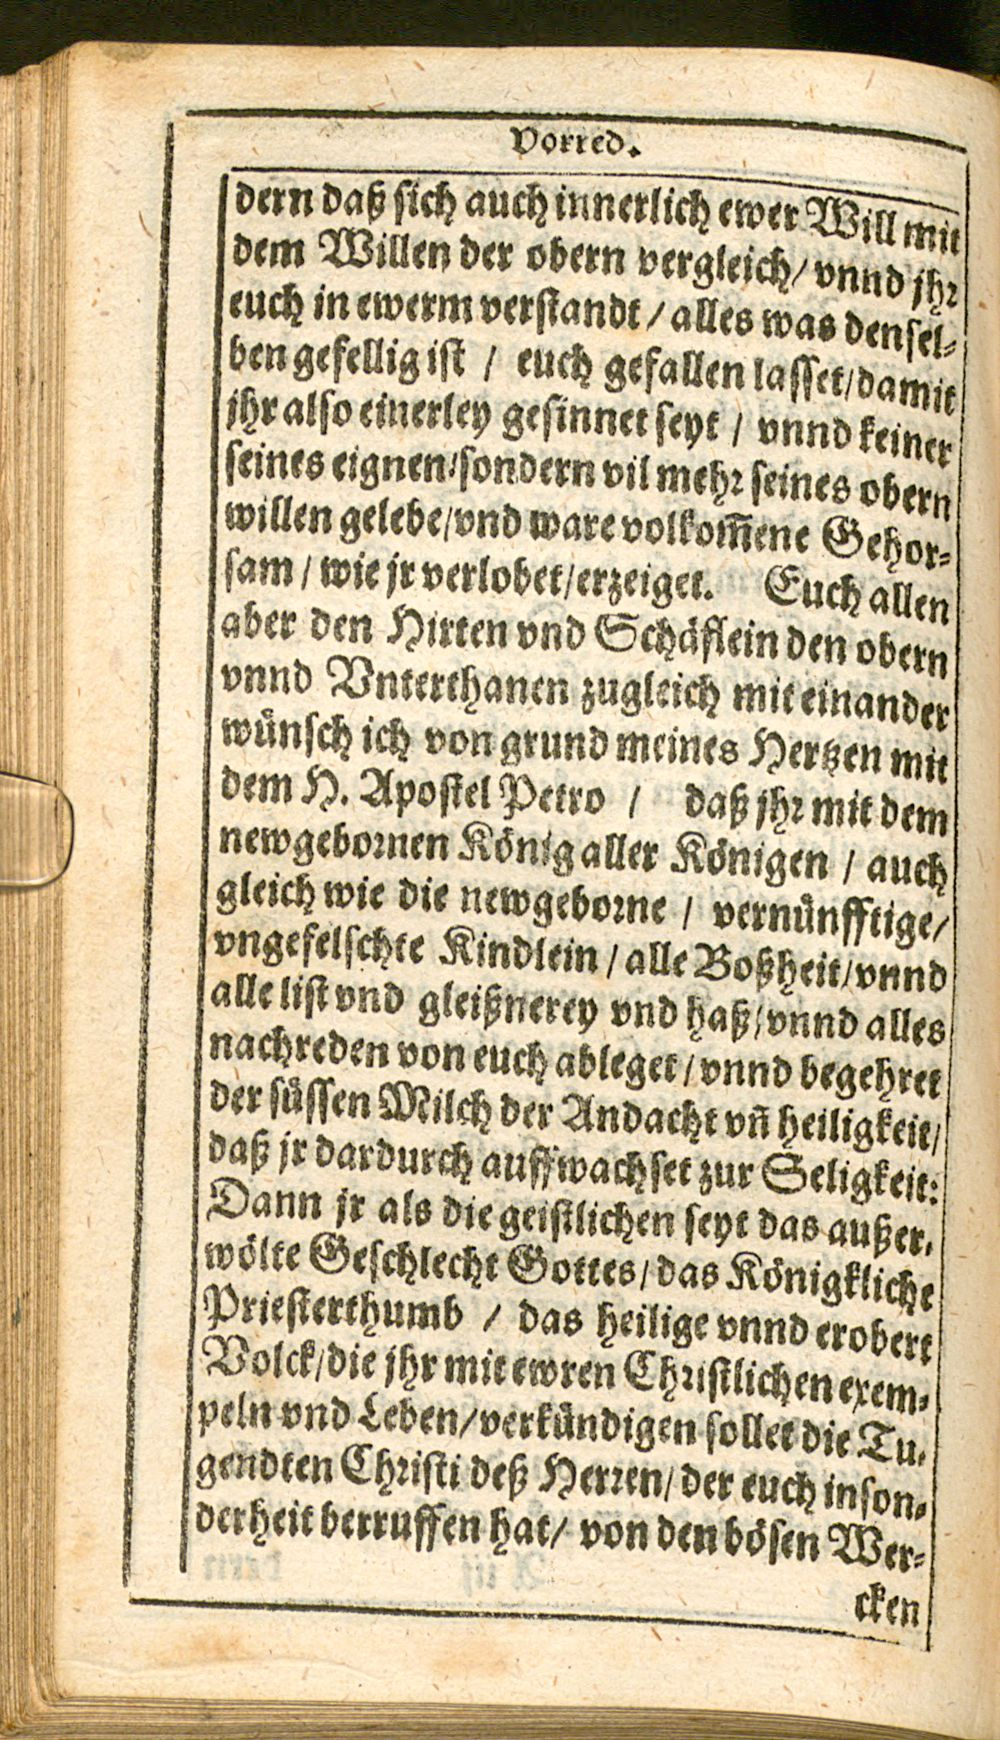 Vorred.
dern daß sich auch innerlich ewer Will mit
dem Willen der obern vergleich/ vnnd jhr
euch in ewerm verstandt / alles was densel-
ben gefellig ist / euch gefallen lasset/damit
jhr also einerley gesinnet seyt / vnnd keiner
seines eignen/sondern vil mehr seines obern
willen gelebe/vnd ware volkom̅ene Gehor-
sam / wie jr verlobet/erzeiget. Euch allen
aber den Hirten vnd Schäflein den obern
vnnd Vnterthanen zugleich mit einander
wünsch ich von grund meines Hertzen mit
dem H. Apostel Petro / daß jhr mit dem
newgebornen König aller Königen / auch
gleich wie die newgeborne / vernünfftige/
vngefelschte Kindlein / alle Boßheit/vnnd
alle list vnd gleißnerey vnd haß/vnnd alles
nachreden von euch ableget / vnnd begehret
der süssen Milch der Andacht vn̅ heiligkeit/
daß jr dardurch auffwachset zur Seligkeit:
Dann jr als die geistlichen seyt das außer-
wölte Geschlecht Gottes / das Königkliche
Priesterthumb / das heilige vnnd erobert
Volck/die jhr mit ewren Christlichen exem-
peln vnd Leben/verkündigen sollet die Tu-
gendten Christi deß Herren/ der euch inson-
derheit berruffen hat/ von den bösen Wer-
cken